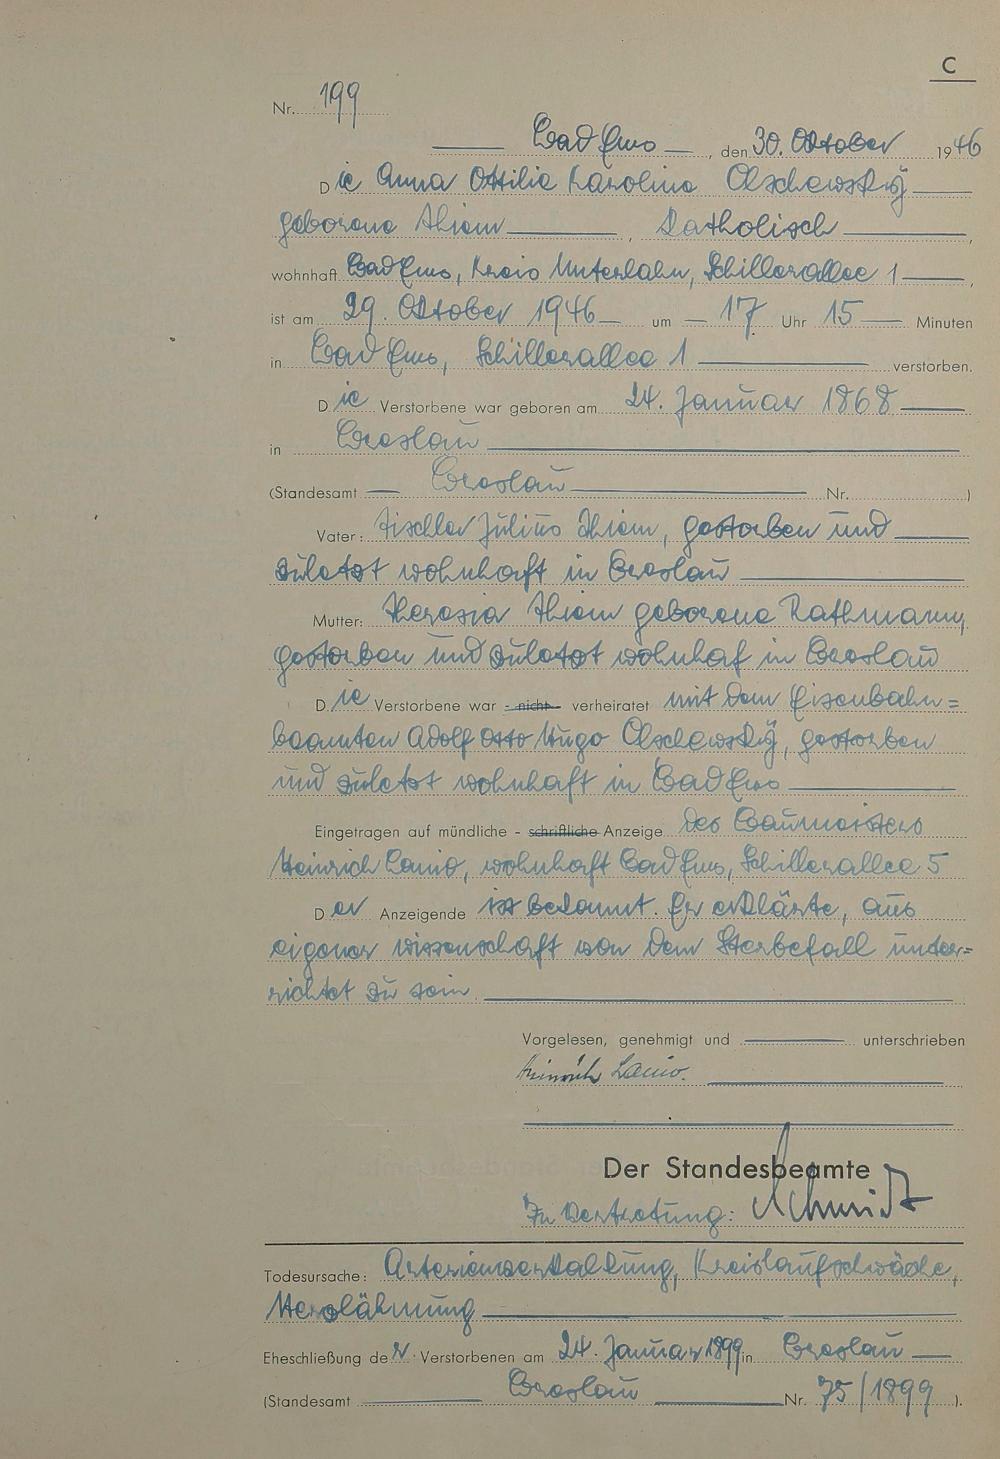 C
Nr. 199
Bad Ems, den 30. Oktober 1946
Die Anna Ottilie Karoline Olschewský
geborene Thiem, Katholisch,
wohnhaft Bad Ems, Kreis Unterlahn, Schillerallee 1,
ist am 29. Oktober 1946 um 17 Uhr 15 Minuten
in Bad Ems, Schillerallee 1 verstorben.
Die Verstorbene war geboren am 24. Januar 1868
in Breslau
(Standesamt Breslau Nr. )
Vater: Tischler Julius Thiem, gestorben und
zuletzt wohnhaft in Breslau
Mutter: Theresia Thiem geborene Rathmann,
gestorben und zuletzt wohnhaf in Breslau
Die Verstorbene war - nicht - verheiratet mit dem Eisenbahn=
beamten Adolf Otto Hugo Olschewský, gestorben
und zuletzt wohnhaft in Bad Ems
Eingetragen auf mündliche - schriftliche Anzeige des Baumeisters
Heinrich Lanio, wohnhaft Bad Ems, Schillerallee 5
Der Anzeigende ist bekannt. Er erklärte, aus
eigener wissenschaft von dem Sterbefall unter=
richtet zu sein
Vorgelesen, genehmigt und unterschrieben
Heinrich Lanio.
Der Standesbeamte
In Vertretung: Schmidt
Todesursache: Arterienverkalkung, Kreislaufschwäche,
Herzlähmung
Eheschließung der Verstorbenen am 24. Januar 1899 in Breslau
(Standesamt Breslau Nr. 75/1899 ).